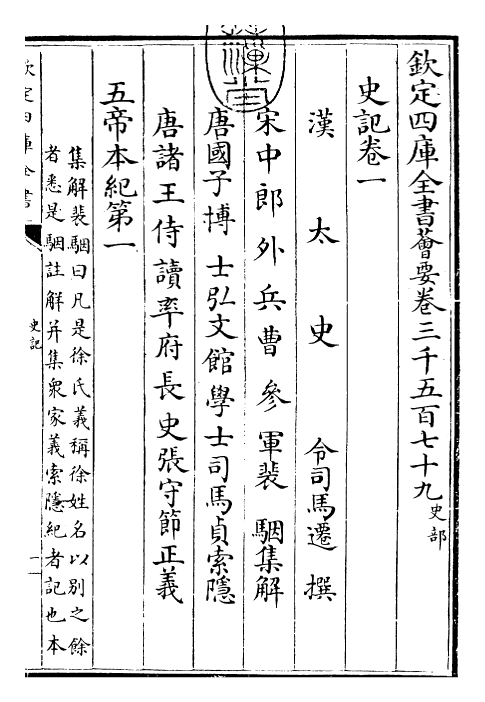 欽定四庫全書薈要卷三千五百七十九史部
史記卷一
漢太史令司馬遷撰
宋中郎外兵曹參軍裴駰集解
唐國子博士弘文館學士司馬貞索隱
唐諸王侍讀率府長史張守節正義
五帝本紀第一
集解裴駰曰凡是徐氏義稱徐姓名以別之餘
者悉是駰註解并集衆家義索隱紀者記也本
欽定四庫全書
史記
一